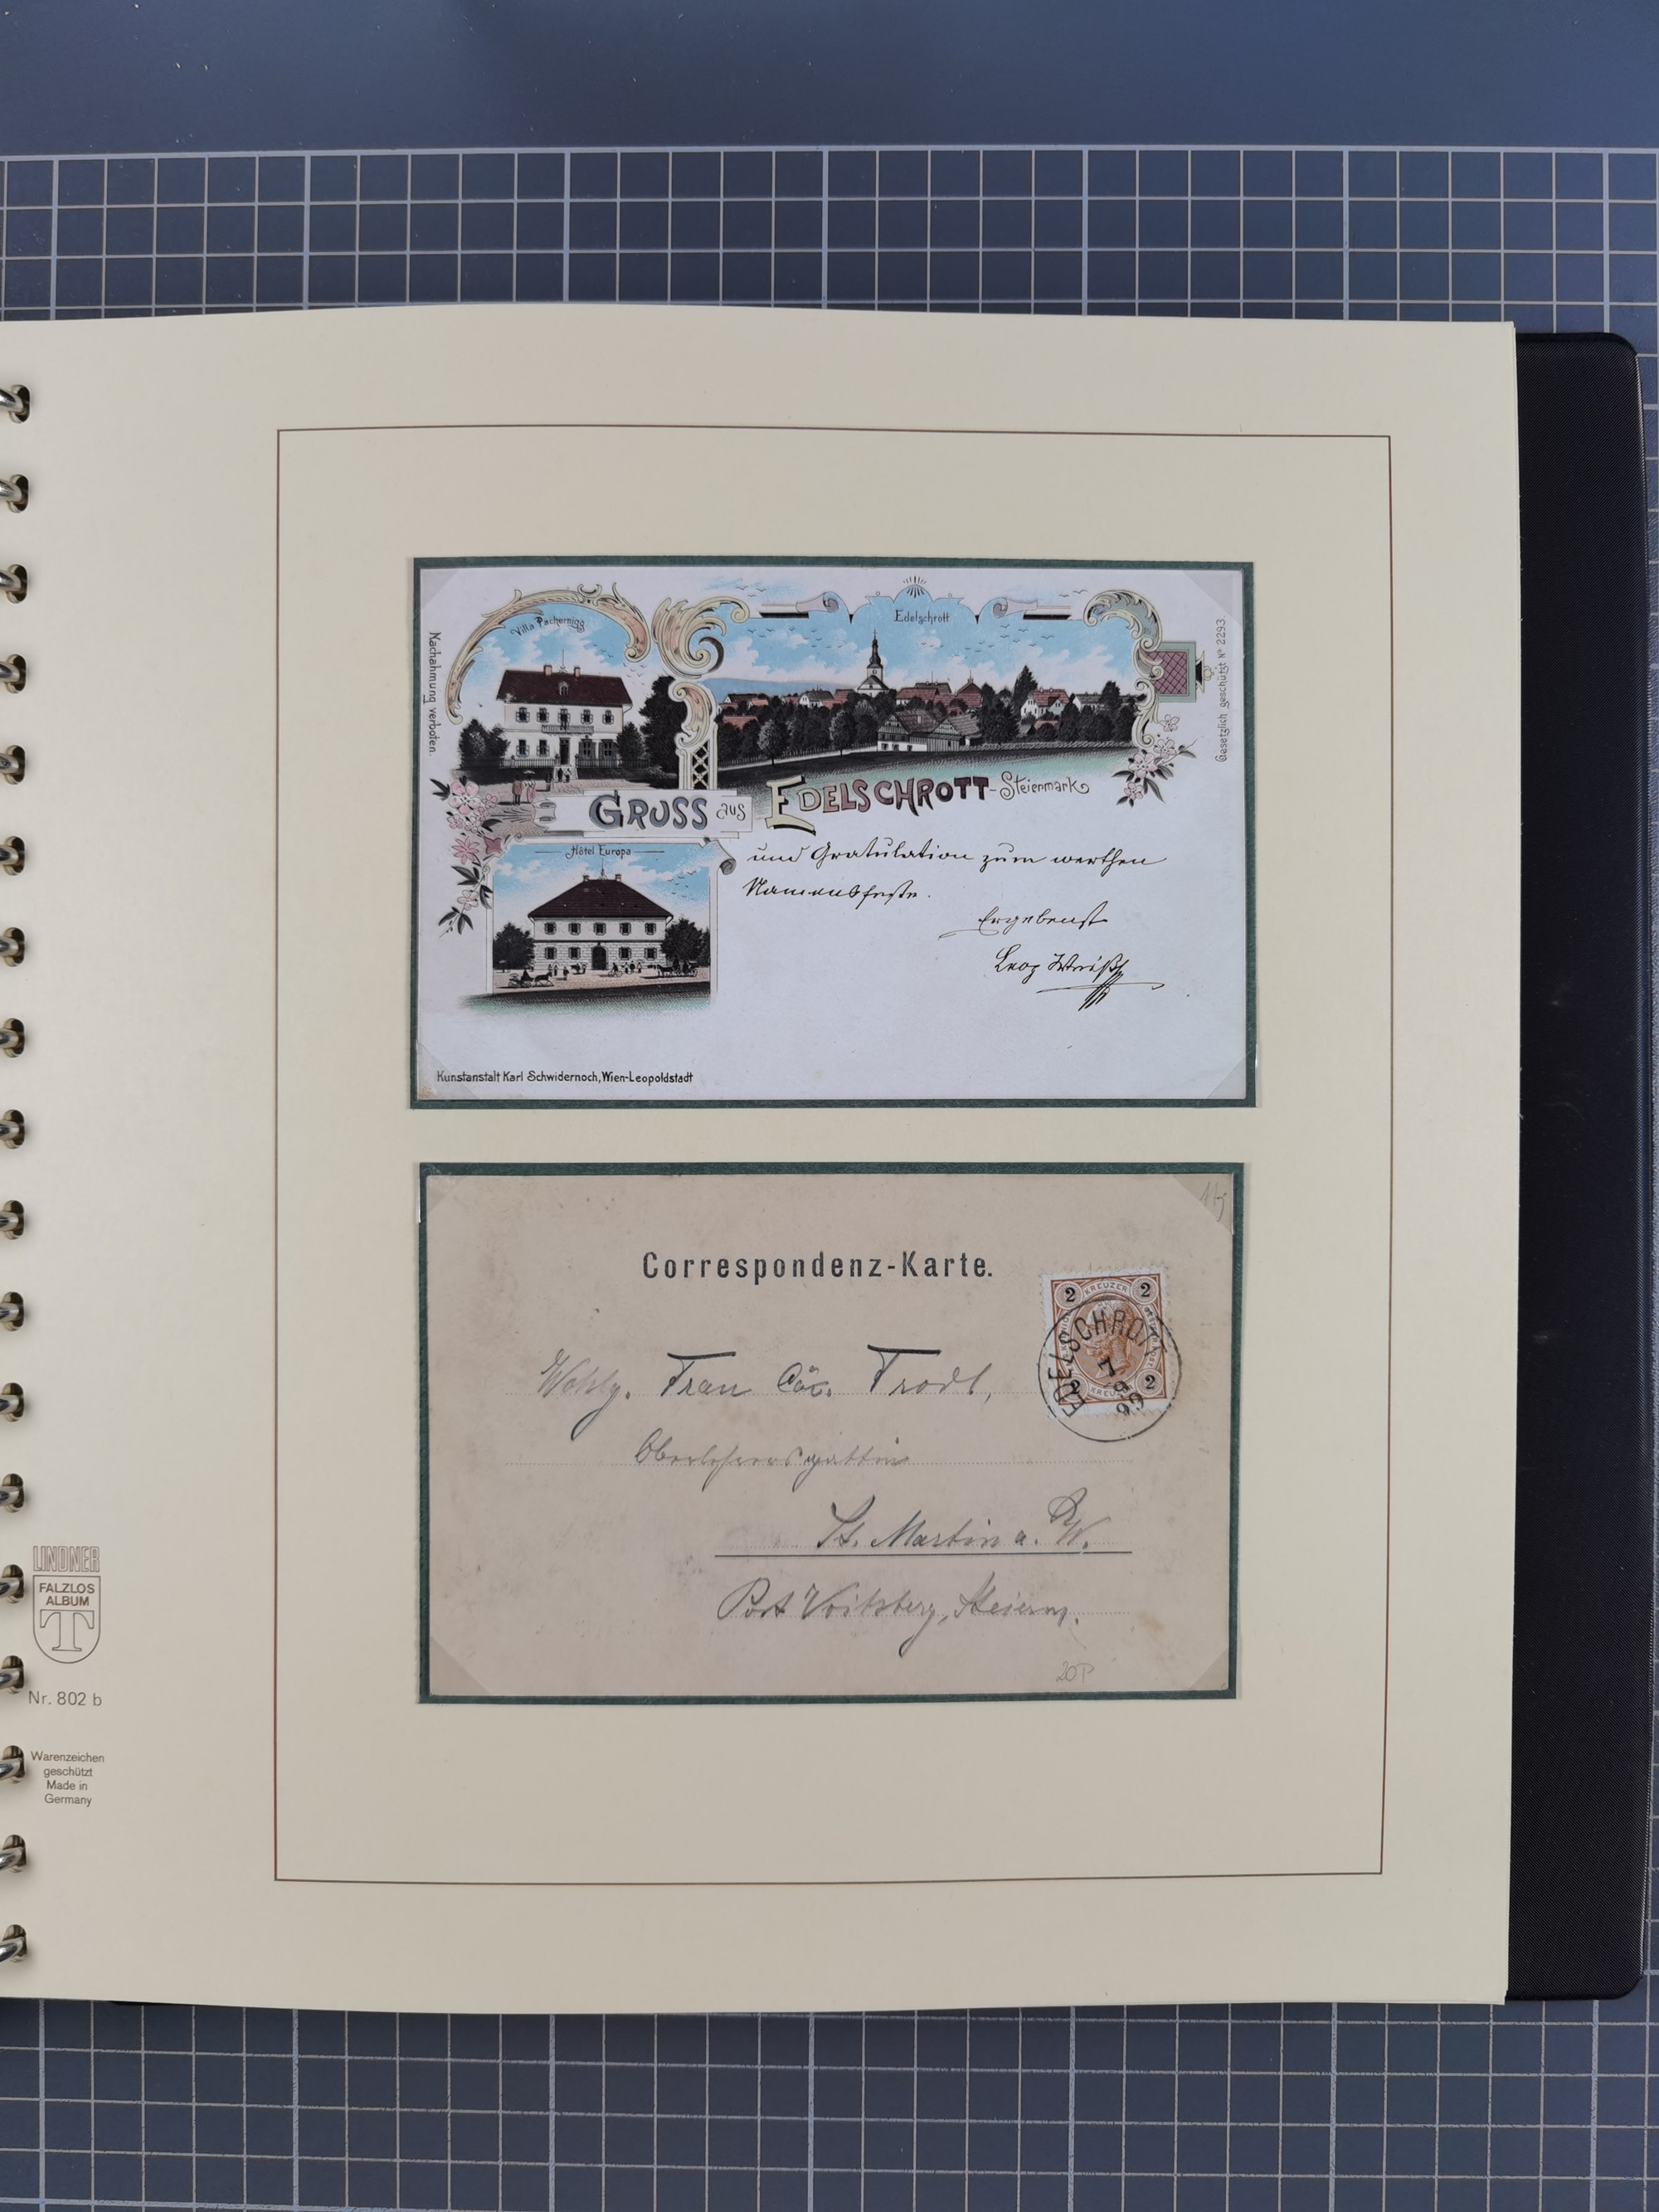 Villa Pachernigg
Edelschrott
Nachahmung verboten.
Gesetzlich geschützt No 2293
GRUSS aus EDELSCHROTT-Steiermark
Hôtel Europa
und Gratulation zum werthen
Namensfeste.
Ergebenst
Kunstanstalt Karl Schwidernoch, Wien-Leopoldstadt
Correspondenz-Karte.
2 KREUZER 2
2 2
EDELSCHROTT
7
99
Wohlg. Frau Trodl,
Oberlehrersgattin
St. Martin a.
Post Voitsberg, Steierm.
20P
LINDNER
FALZLOS
ALBUM
T
Nr. 802 b
Warenzeichen
geschützt
Made in
Germany